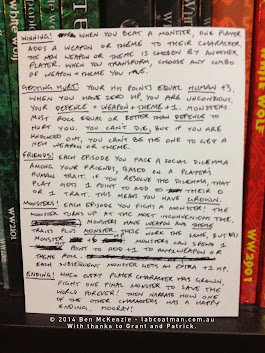 WINNING! WHEN YOU BEAT A MONSTER, ONE PLAYER
ADDS A WEAPON OR THEME TO THEIR CHARACTER.
THE NEW WEAPON OR THEME IS CHOSEN BY ANOTHER
PLAYER. WHEN YOU TRANSFORM, CHOOSE ANY COMBO
OF WEAPON + THEME YOU HAVE.
GETTING HURT! YOUR HIT POINTS EQUAL HUMAN +3.
WHEN YOU HAVE ZERO HP, YOU ARE UNCONSCIOUS.
YOUR DEFENCE = WEAPON + THEME +1. MONSTERS
MUST ROLL EQUAL OR BETTER THAN DEFENCE TO
HURT YOU. YOU CAN'T DIE, BUT IF YOU ARE
KNOCKED OUT, YOU CAN'T BE THE ONE TO GET A
NEW WEAPON OR THEME.
FRIENDS! EACH EPISODE YOU FACE A SOCIAL DILEMMA
AMONG YOUR FRIENDS, BASED ON A PLAYER'S
HUMAN TRAIT. IF YOU RESOLVE THE DILEMMA THAT
PLAYER GETS 1 POINT TO ADD TO THEIR
TRAIT. THIS MEANS YOU HAVE GROWN.
MONSTERS! EACH EPISODE YOU FIGHT A MONSTER! THE
MONSTER TURNS UP AT THE MOST INCONVENIENT TIME.
MONSTERS HAVE WEAPON AND THEME
TRAITS PLUS MONSTER. THESE WORK THE SAME, BUT
MONSTER MONSTERS CAN SPEND 1
POINT TO ADD +1 TO ANY WEAPON OR
THEME ROLL.
EACH SUBSEQUENT MONSTER GETS AN EXTRA +2 HP.
ENDING! WHEN EVERY PLAYER CHARACTER HAS GROWN
FIGHT ONE FINAL MONSTER TO SAVE THE
WORLD FOREVER! THEN NARRATE HOW ONE
OF THE OTHER CHARACTERS HAS A HAPPY
ENDING. HOORAY!
© 2014 Ben McKenzie - labcoatman.com.au
With thanks to Grant and Patrick.
WHITE WOLF
WW2901
WW2201